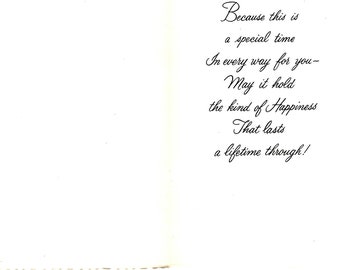 Because this is
a special time
In every way for you—
May it hold
the kind of Happiness
That lasts
a lifetime through!